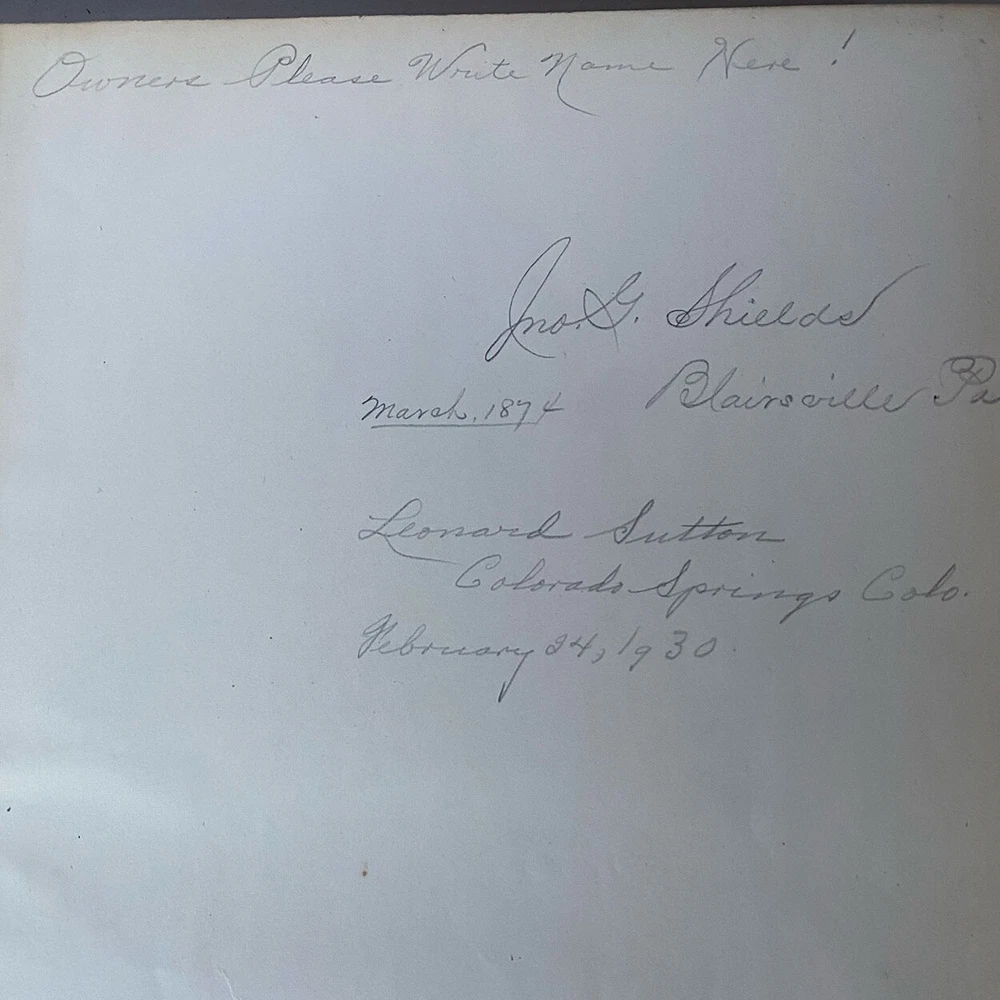 Owners Please Write Name Here!
Jno. G. Shields
Blairsville Pa
March, 1874
Leonard Sutton
Colorado Springs Colo.
February 24, 1930